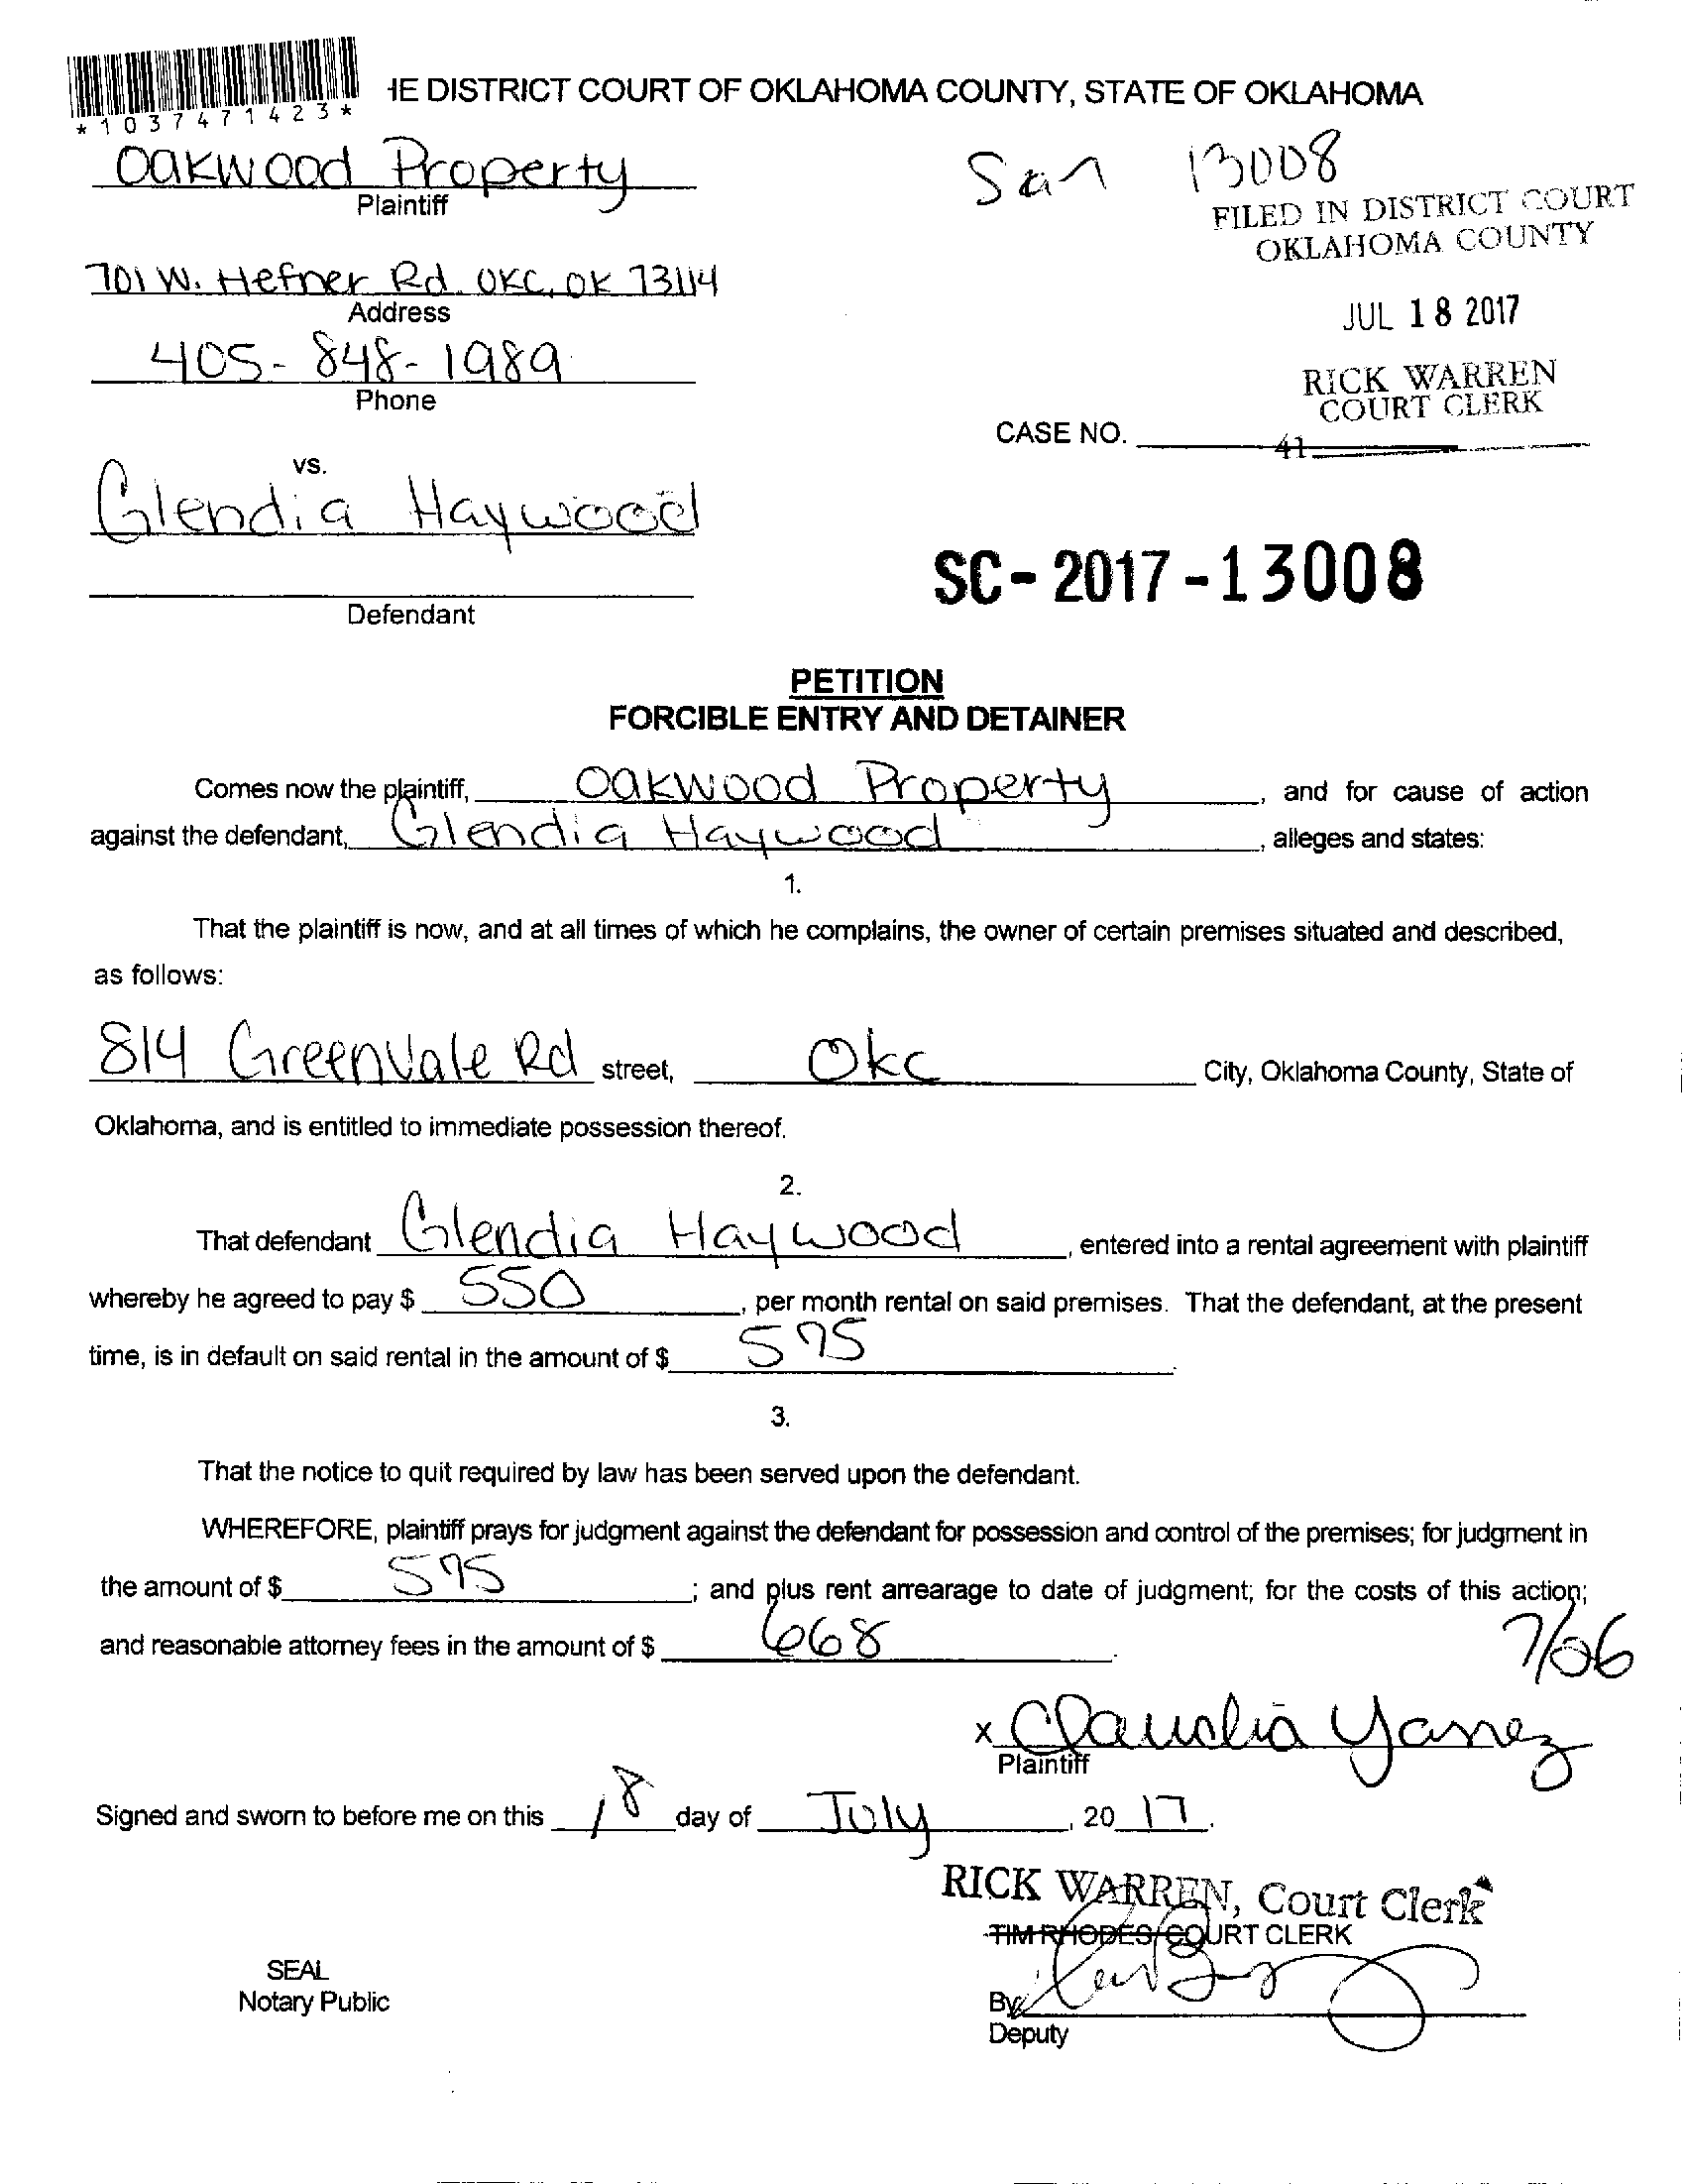 HE DISTRICT COURT OF OKLAHOMA COUNTY, STATE OF OKLAHOMA
*1037471423*
Oakwood Property
Plaintiff
San 13008
FILED IN DISTRICT COURT
OKLAHOMA COUNTY
701 W. Hefner Rd. OKC, OK 73114
Address
JUL 18 2017
405-848-1989
Phone
RICK WARREN
COURT CLERK
CASE NO.
41
vs.
Glendia Haywood
SC-2017-13008
Defendant
PETITION
FORCIBLE ENTRY AND DETAINER
Comes now the plaintiff, Oakwood Property, and for cause of action
against the defendant, Glendia Haywood, alleges and states:
1.
That the plaintiff is now, and at all times of which he complains, the owner of certain premises situated and described,
as follows:
814 Greenvale Rd street, Okc City, Oklahoma County, State of
Oklahoma, and is entitled to immediate possession thereof.
2.
That defendant Glendia Haywood, entered into a rental agreement with plaintiff
whereby he agreed to pay $ 550, per month rental on said premises. That the defendant, at the present
time, is in default on said rental in the amount of $ 575.
3.
That the notice to quit required by law has been served upon the defendant.
WHEREFORE, plaintiff prays for judgment against the defendant for possession and control of the premises; for judgment in
the amount of $ 575; and plus rent arrearage to date of judgment; for the costs of this action;
and reasonable attorney fees in the amount of $ 668.
7/26
x Claudia Yanez
Plaintiff
Signed and sworn to before me on this 18 day of July, 2017.
RICK WARREN, Court Clerk
TIM RHODES, COURT CLERK
SEAL
Notary Public
By
Deputy